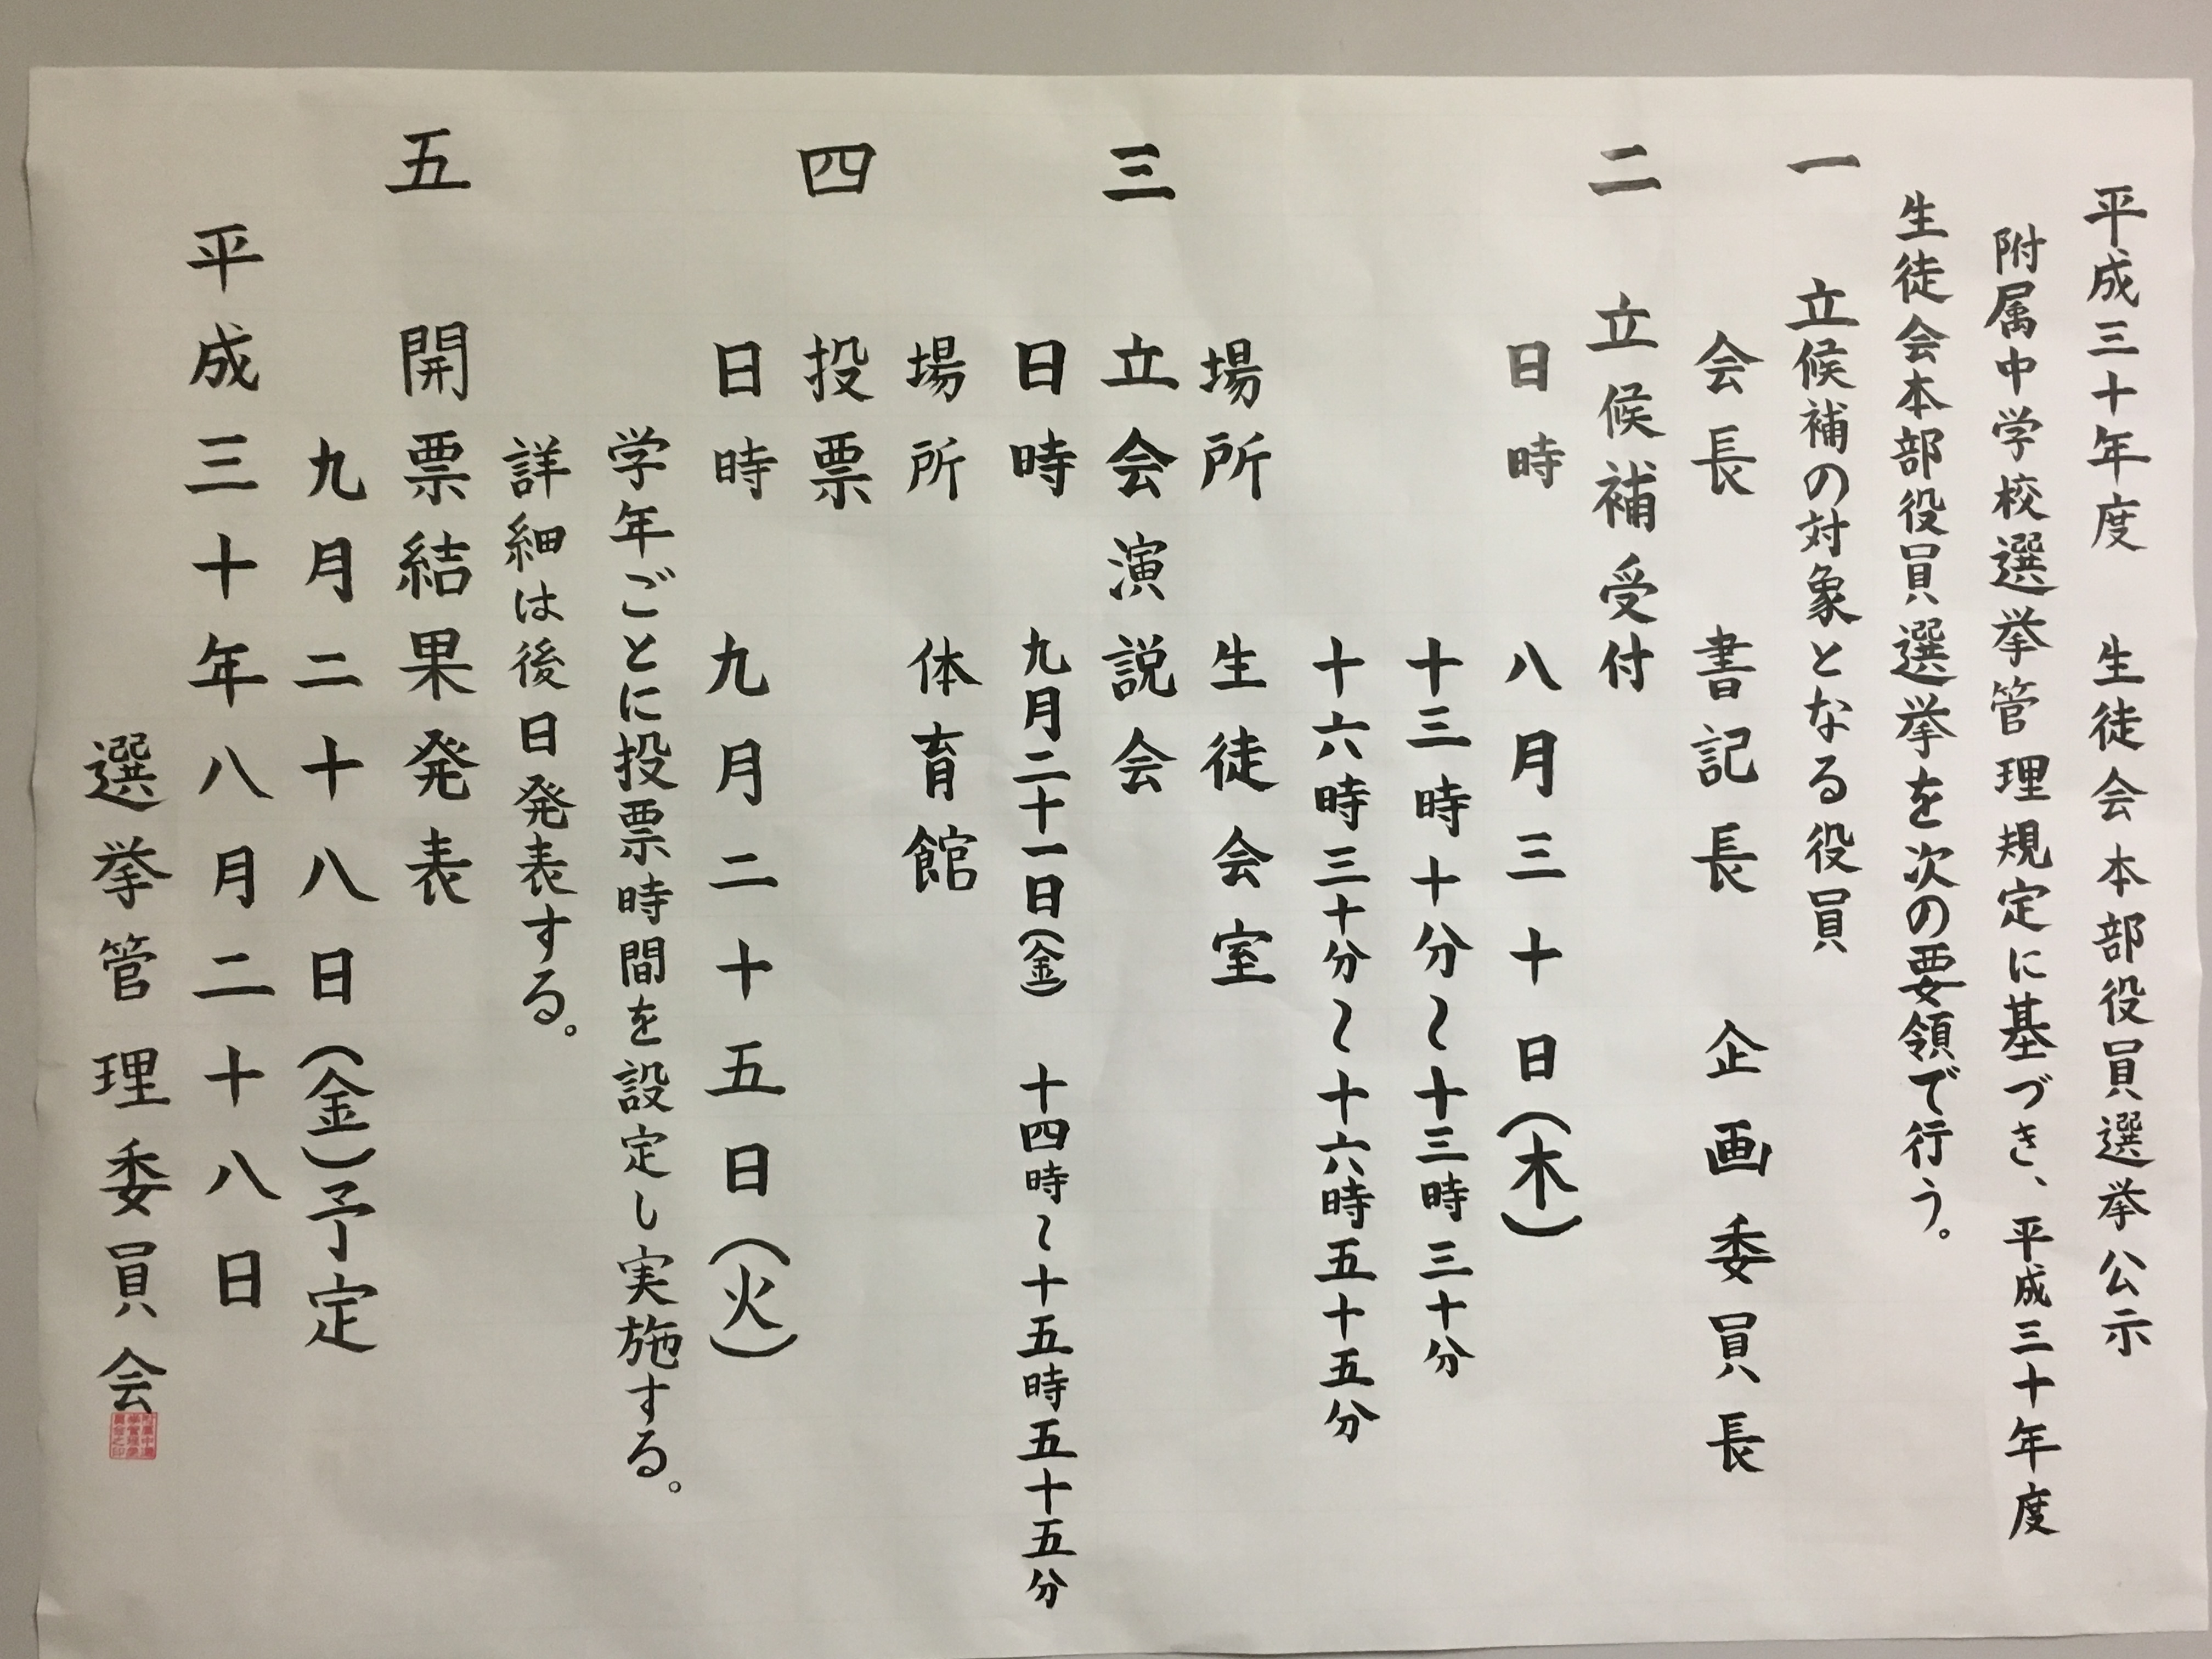 平成三十年度　生徒会本部役員選挙公示
附属中学校選挙管理規定に基づき、平成三十年度
生徒会本部役員選挙を次の要領で行う。
一　立候補の対象となる役員
会長　書記長　企画委員長
二　立候補受付
日時　八月三十日（木）
十三時十分〜十三時三十分
十六時三十分〜十六時五十五分
場所　生徒会室
三　立会演説会
日時　九月二十一日（金）　十四時〜十五時五十五分
場所　体育館
四　投票
日時　九月二十五日（火）
学年ごとに投票時間を設定し実施する。
詳細は後日発表する。
五　開票結果発表
九月二十八日（金）予定
平成三十年八月二十八日
選挙管理委員会